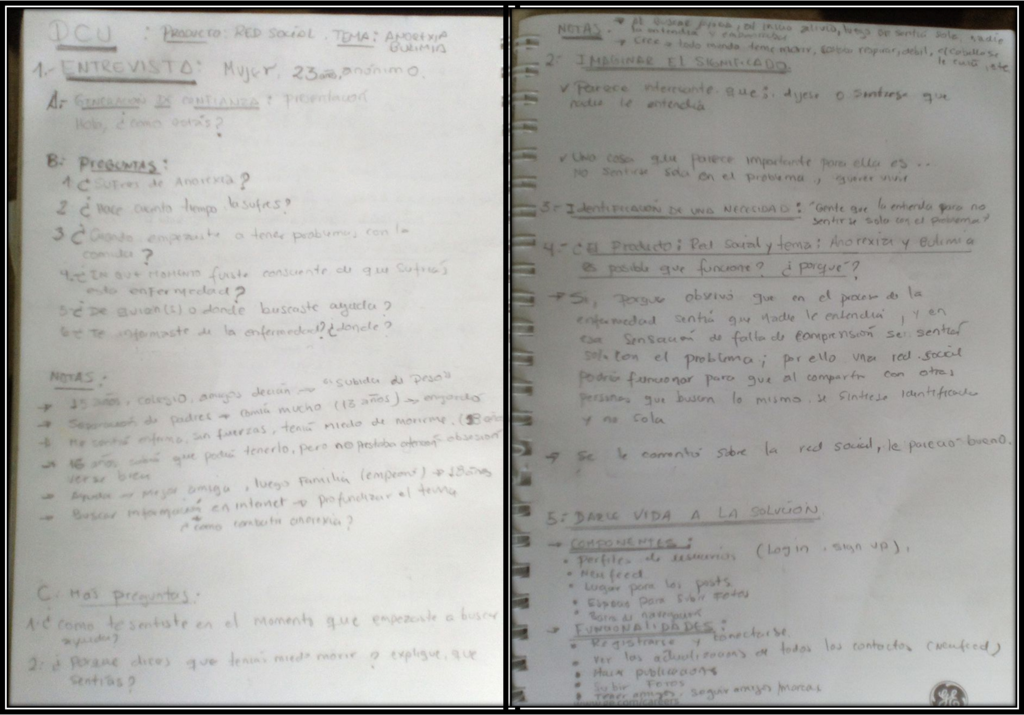 DCU : PRODUCTO: RED SOCIAL. TEMA: ANOREXIA
BULIMIA
1.- ENTREVISTA: Mujer, 23 años, anónimo.
A.- GENERACIÓN DE CONFIANZA: Presentación
Hola, ¿como estás?
B: PREGUNTAS:
1. ¿Sufres de Anorexia?
2 ¿Hace cuanto tiempo la sufres?
3 ¿Cuando empezaste a tener problemas con la
comida?
4.- ¿En que momento fuiste consciente de que sufrías
esta enfermedad?
5.- ¿De quien(s) o donde buscaste ayuda?
6.- ¿Te informaste de la enfermedad? ¿donde?
NOTAS:
→ 15 años, colegio, amigos decían → "subida de peso"
→ Separación de padres → comía mucho (13 años) → engordó
→ Me sentía enferma, sin fuerzas, tenía miedo de morirme,
→ 16 años, sabía que podía tenerlo, pero no
verse bien
→ Ayuda → Mejor amiga, luego familia (empeoró) →
→ Buscar información en internet → profundizar el tema
¿como combatir anorexia?
C. Mas preguntas.
1.- ¿Como te sentiste en el momento que empezaste a buscar
ayuda?
2: ¿Porque dices que tenías miedo morir? explique, que
sentías?
NOTAS. Al buscar ayuda, al inicio alivio, luego se sentía sola, nadie
la entendía
→ todo mundo, temía morir, débil, el cabello se
le caía, etc
2: IMAGINAR EL SIGNIFICADO
✓ Parece interesante que: dijese o sintiese que
nadie le entendía
✓ Una cosa que parece importante para ella es ...
no sentirse sola en el problema, querer vivir
3.- Identificación DE UNA NECESIDAD: "Gente que la entienda para no
sentirse sola con el problema"
4.- ¿El Producto: Red Social y tema: Anorexia y Bulimia
es posible que funcione? ¿porqué?
→ Sí, porque observó que en el proceso de la
enfermedad sentía que nadie le entendía, y en
esa sensación de falta de comprensión se sentía
sola con el problema; por ello una red social
podría funcionar para que al compartir con otras
personas que busquen lo mismo se sintiese identificada
y no sola
→ Se le comentó sobre la red social, le pareció bueno.
5: DARLE VIDA A LA SOLUCIÓN
→ COMPONENTES:
• Perfiles de usuarios (Login, sign up),
• Newfeed
• Lugar para los posts
• Espacio para subir fotos
• Barra de navegación
→ FUNCIONALIDADES:
• Registrarse y conectarse.
• Ver las actualizaciones de todos los contactos (Newfeed)
• Hacer publicaciones
• Subir Fotos
• Tener amigos, seguir amigos/marcas